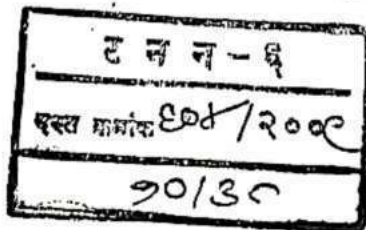 ट न न - ६
दस्त क्रमांक ६०४/२००९
१०/३८